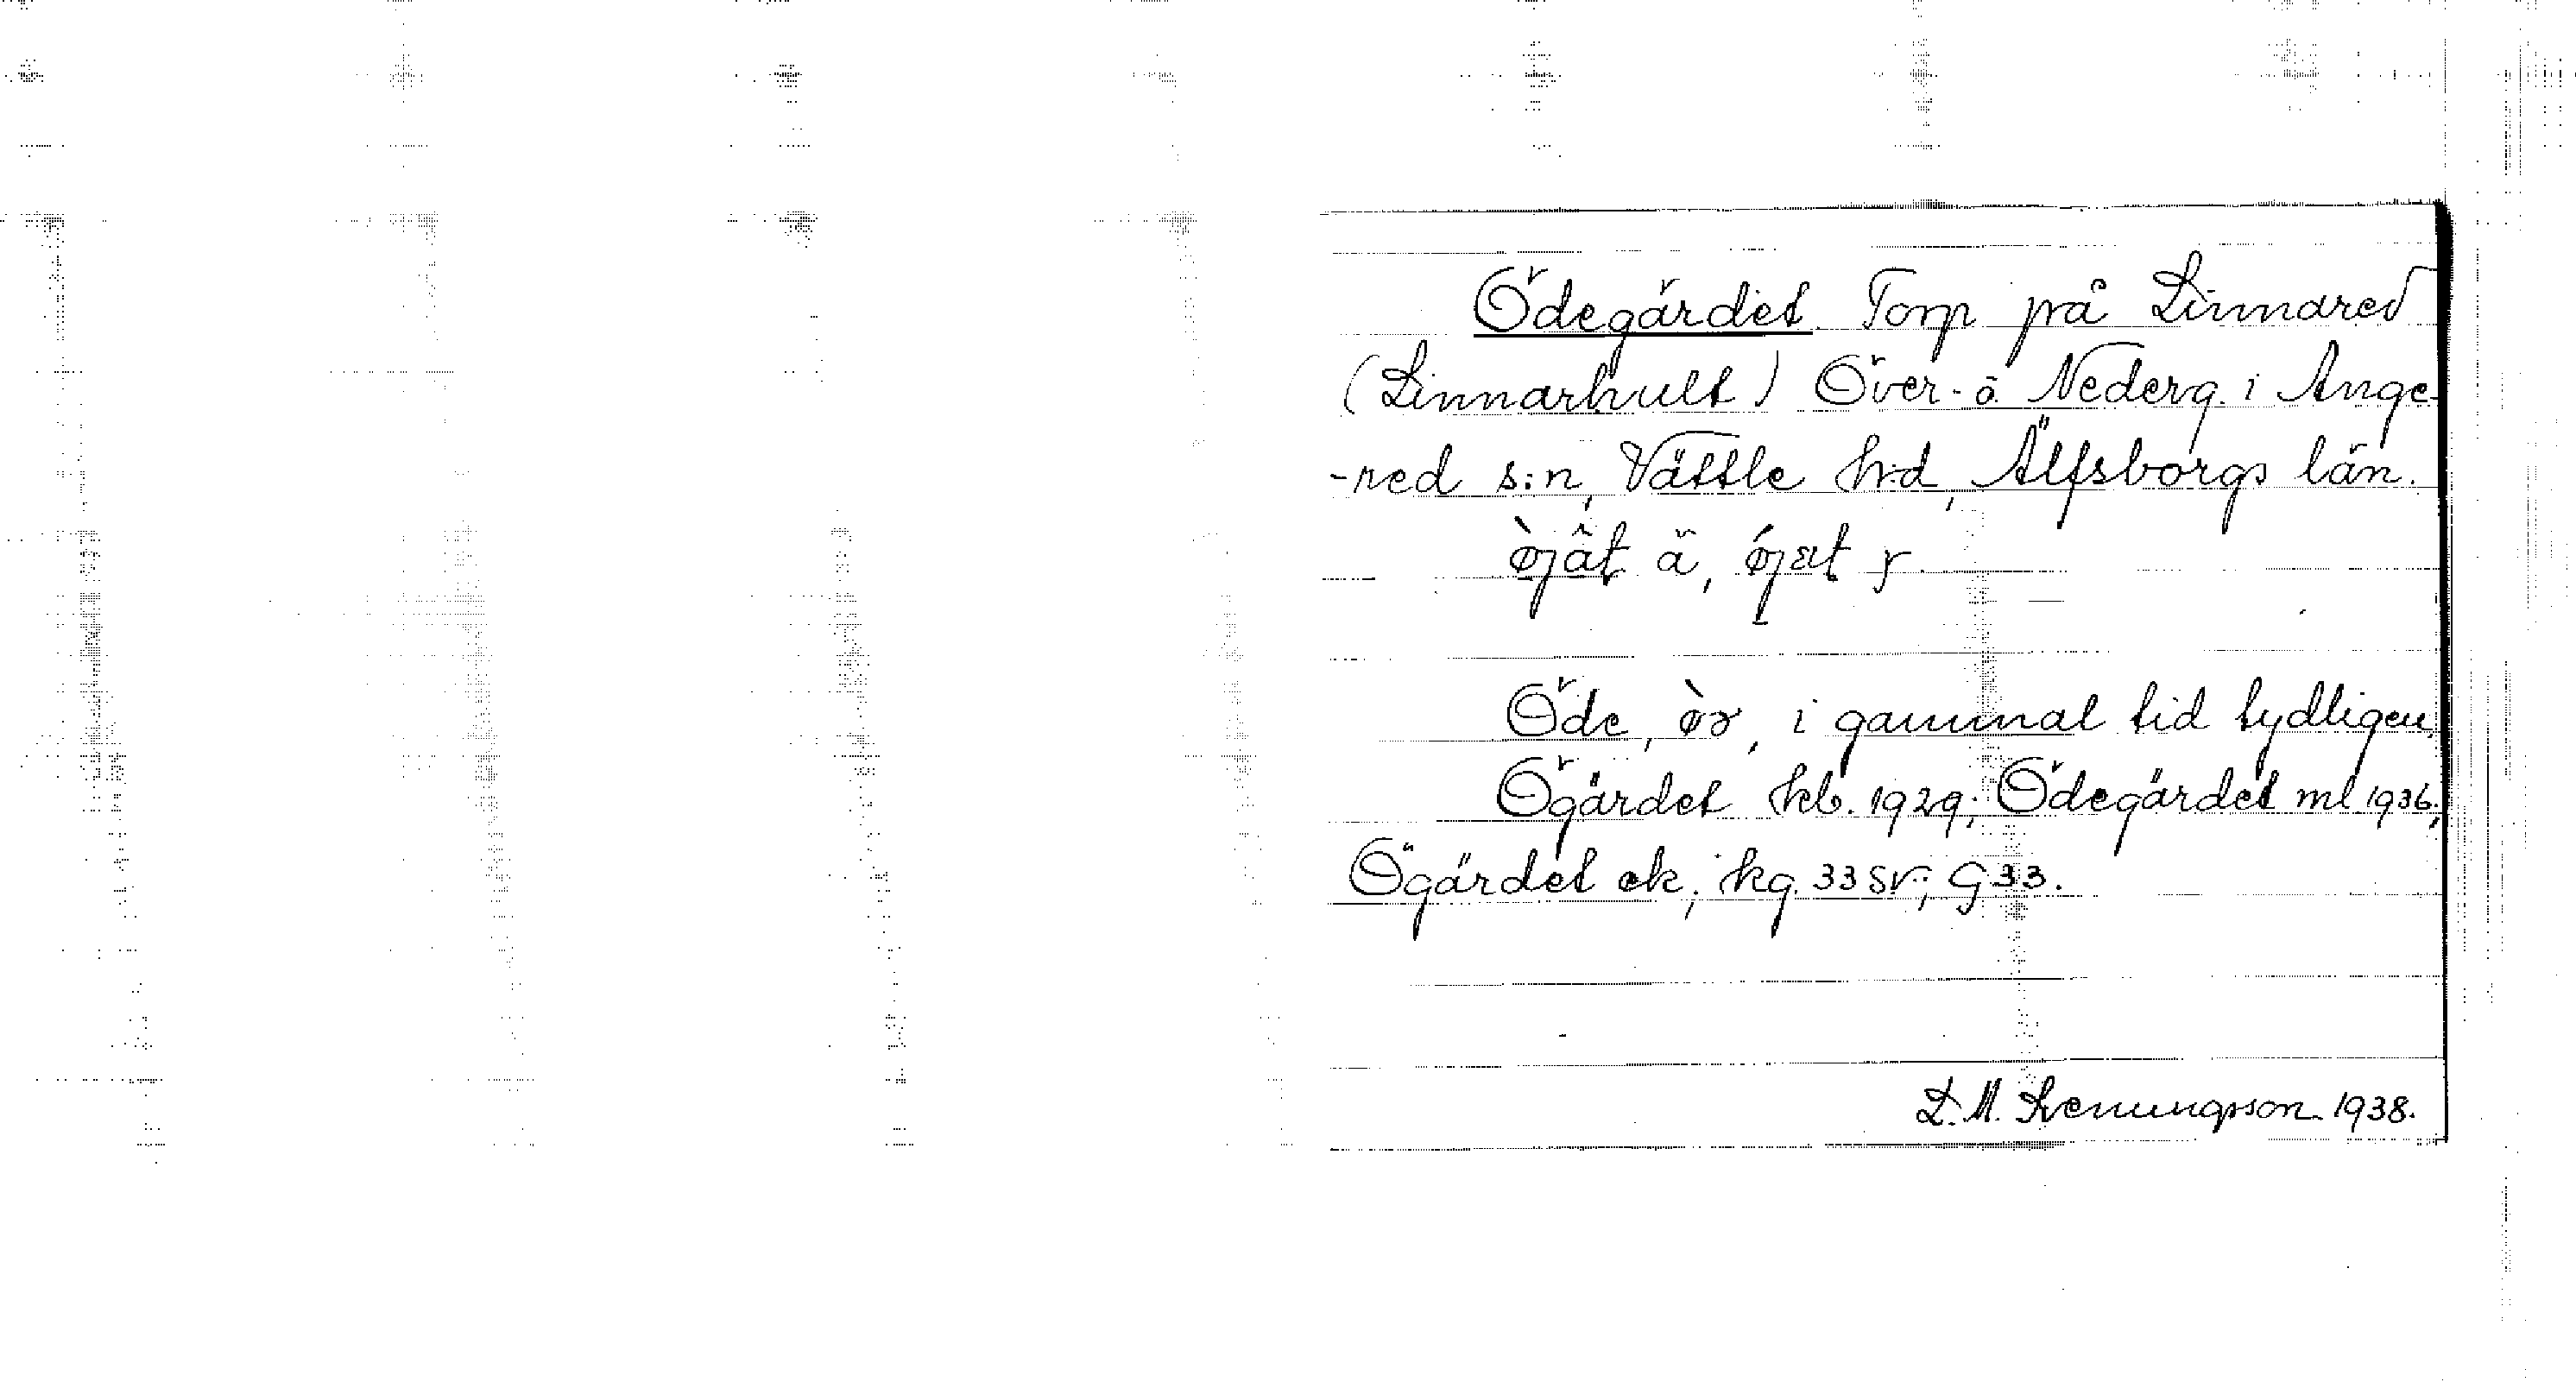 Ödegärdet. Torp på Linnared
(Linnarhult) Över- o. Nederg. i Ange-
-red s:n, Vättle h:d, Älfsborgs län.
òjät ä, ójæt y.
Öde, i gammal tid tydligen.
Ögärdet kb. 1929; Ödegärdet ml 1936;
Ögärdet ek; kg. 33 SV; G 33.
L. M. 1938.